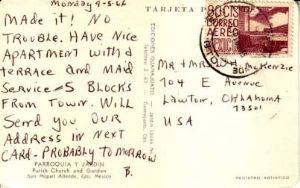 Monday 9-5-66
Made it! No
trouble. Have nice
apartment with a
terrace and maid
service - 5 blocks
from town. Will
send you our
address in next
card - probably tomorrow
B.
PARROQUIA Y JARDIN
Parish Church and Garden
San Miguel Allende, Gto. Mexico
TARJETA
80CTS
CORREO
AEREO
Mr & Mrs McKenzie
104 E Avenue
Lawton, Oklahoma
73501
USA
REGISTRO ARTISTICO